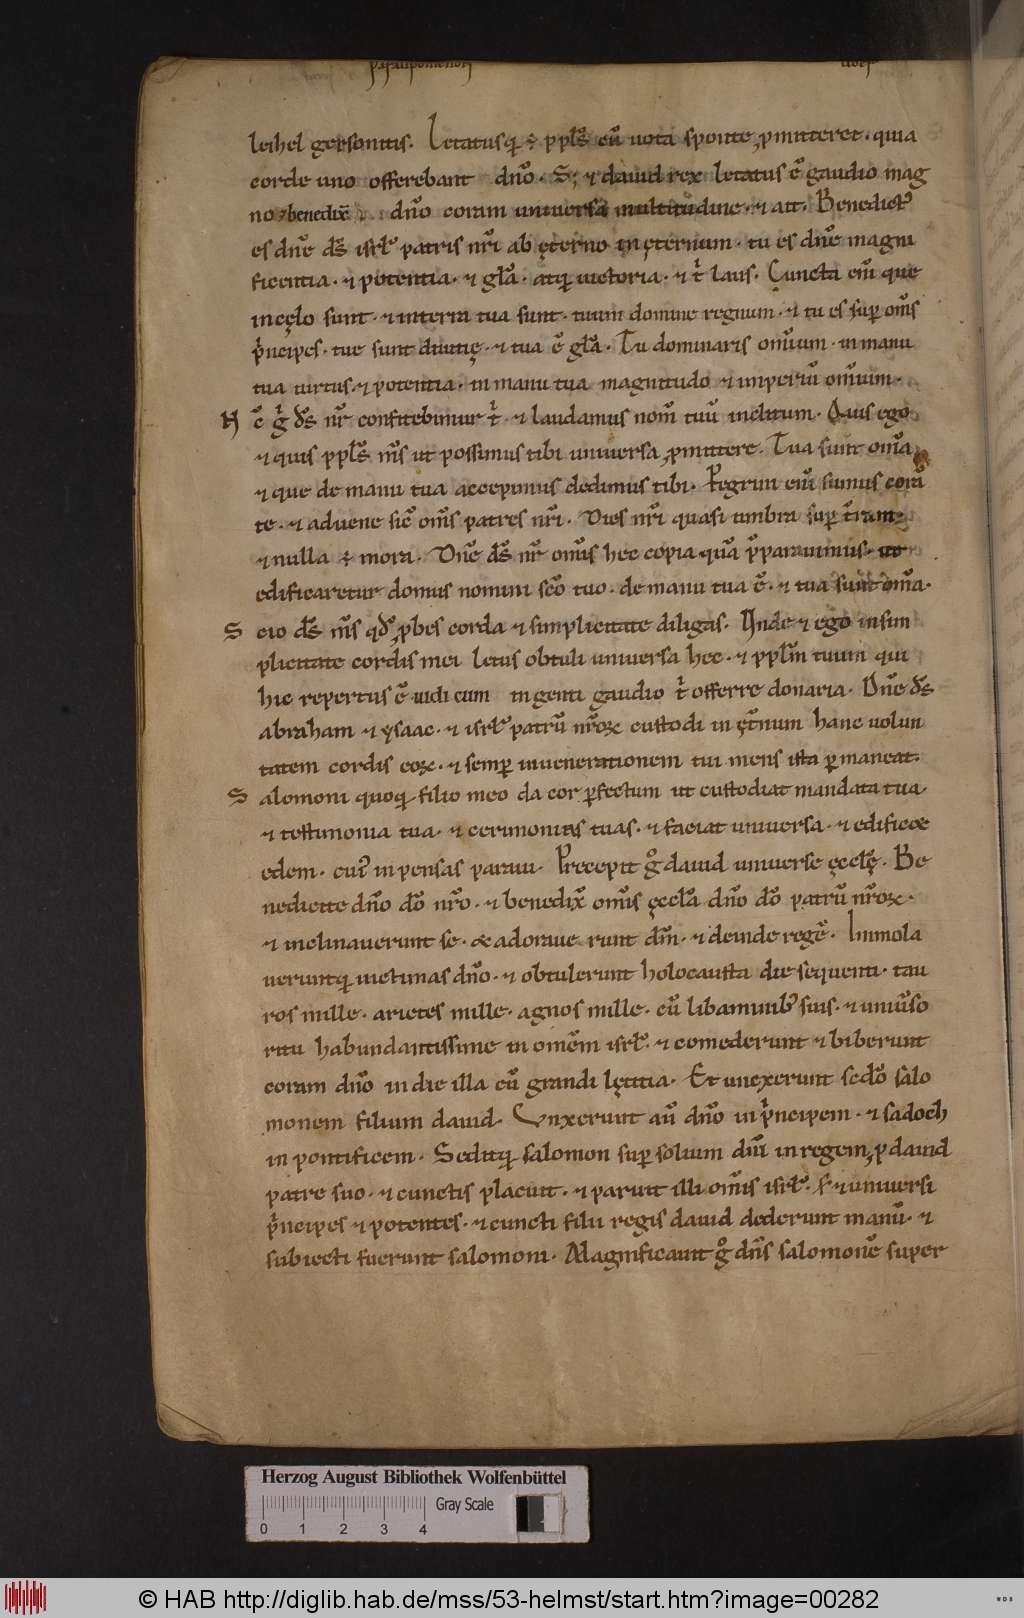 paralipomenon
leihel gersonitis. Letatusq; ÷ ppls̄ cū uota sponte ꝓmitteret. quia
corde uno offerebant dn̄o. S; ⁊ dauid rex letatus ē gaudio mag
no ⁊ benedix̄ dn̄o coram uniuersa multitudine. ⁊ ait. Benedict᷒
es dn̄e ds̄ isrl̄ patris nr̄i ab ęterno in ęternum. tu es dn̄e magni
ficentia. ⁊ potentia. ⁊ gl̄a. atq; uictoria. ⁊ t̄ laus. Cuncta eni᷒ que
in cęlo sunt. ⁊ in terra tua sunt. tuum domine regnum. ⁊ tu es sup̄ om̄s
p̄ncipes. tue sunt diuitię. ⁊ tua ē gl̄a. Tu dominaris om̄ium. in manu
tua uirtus. ⁊ potentia. in manu tua magnitudo ⁊ imperiū om̄ium.
N c̄ g̊ ds̄ nr̄ confitebimur t̄ ⁊ laudamus nom̄ tuū inclitum. Quis ego
⁊ quis ppls̄ m̄s ut possimus tibi uniuersa ꝓmittere. Tua sunt om̄a
⁊ que de manu tua accepimus dedimus tibi. Pegrini eni᷒ sumus corā
te. ⁊ aduene sic̄ om̄s patres nr̄i. Dies nr̄i quasi umbra sup̄ t̄ram.
⁊ nulla ÷ mora. Dn̄e ds̄ nr̄ om̄is hec copia quā p̄parauimus. ut
edificaretur domus nomini sc̄o tuo. de manu tua ē. ⁊ tua sunt om̄a.
S cio ds̄ m̄s qd̄ ꝓbes corda ⁊ simplicitate diligas. Unde ⁊ ego in sim
plicitate cordis mei letus obtuli uniuersa hec. ⁊ pplm̄ tuum qui
hic repertus ē uidi cum ingenti gaudio t̄ offerre donaria. Dn̄e ds̄
abraham ⁊ ysaac. ⁊ isrl̄ patrū nr̄oꝝ custodi in ęt̄num hanc uolun
tatem cordis eoꝝ. ⁊ semp̄ in uenerationem tui mens ista ꝑmaneat.
S alomoni quoq; filio meo da cor ꝑfectum ut custodiat mandata tua.
⁊ testimonia tua. ⁊ cerimonias tuas. ⁊ faciat uniuersa. ⁊ edificet
edem. cui᷒ inpensas paraui. Precepit g̊ dauid uniuerse ęccl̄ę. Be
nedicite dn̄o dō nr̄o. ⁊ benedix̄ om̄is ęccl̄a dn̄o dō patrū nr̄oꝝ.
⁊ inclinauerunt se. & adoraue runt dm̄. ⁊ deinde regē. Immola
ueruntq; uictimas dn̄o. ⁊ obtulerunt holocausta die sequenti. tau
ros mille. arietes mille. agnos mille. cū libaminib᷒ suis. ⁊ uniu᷒so
ritu habundantissime in omēm isrl̄. ⁊ comederunt ⁊ biberunt
coram dn̄o in die illa cū grandi lętitia. Et unxerunt sedō salo
monem filium dauid. Unxerunt aū dn̄o in p̄ncipem. ⁊ sadoch
in pontificem. Seditq; salomon sup̄ solium dni᷒ in regem ꝓ dauid
patre suo. ⁊ cunctis placuit. ⁊ paruit illi om̄is isrl̄. S; ⁊ uniuersi
p̄ncipes ⁊ potentes. ⁊ cuncti filii regis dauid dederunt manū. ⁊
subiecti fuerunt salomoni. Magnificauit g̊ dn̄s salomonē super
Herzog August Bibliothek Wolfenbüttel
Gray Scale
0 1 2 3 4
© HAB http://diglib.hab.de/mss/53-helmst/start.htm?image=00282